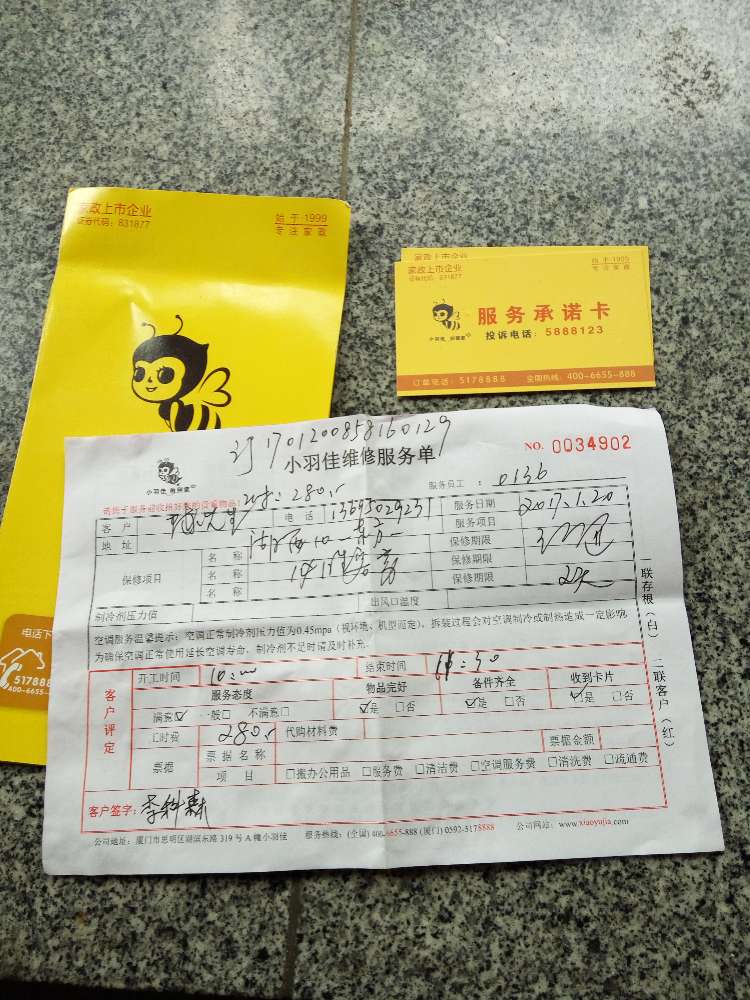 家政上市企业
证券代码：831877
始于·1999
专注家政
家政上市企业
家政上市企业
证券代码：831877
始于·1999
专注家政
小羽佳
服务承诺卡
投诉电话：5888123
订单电话：5178888 全国热线：400-6655-888
电话下
517888
400-6655-8
订1701200858160129
小羽佳维修服务单
NO. 0034902
小羽佳
服务员工：0136
280
客户
先生
电话
13695029231
服务日期
2017.1.20
地址
服务项目
保修项目
名称
保修期限
名称
保修期限
名称
保修期限
制冷剂压力值
出风口温度
空调服务温馨提示：空调正常制冷剂压力值为0.45mpa（视环境、机型而定），拆装过程会对空调制冷或制热造成一定影响
为确保空调正常使用延长空调寿命，制冷剂不足时请及时补充。
客户评定
开工时间
10:00
结束时间
服务态度
物品完好
备件齐全
收到卡片
满意☑ 一般□ 不满意□
☑是 □否
☑是 □否
☑是 □否
□时费
280
代购材料费
票据
票据名称
票据金额
项目
□搬办公用品 □服务费 □清洁费 □空调服务费 □清洗费 □疏通费
客户签字：
一联存根（白） 二联客户（红）
公司地址：厦门市思明区湖滨东路319号A幢小羽佳
服务热线：(全国)400-6655-888 (厦门)0592-5178888
公司网站：www.xiaoyujia.com